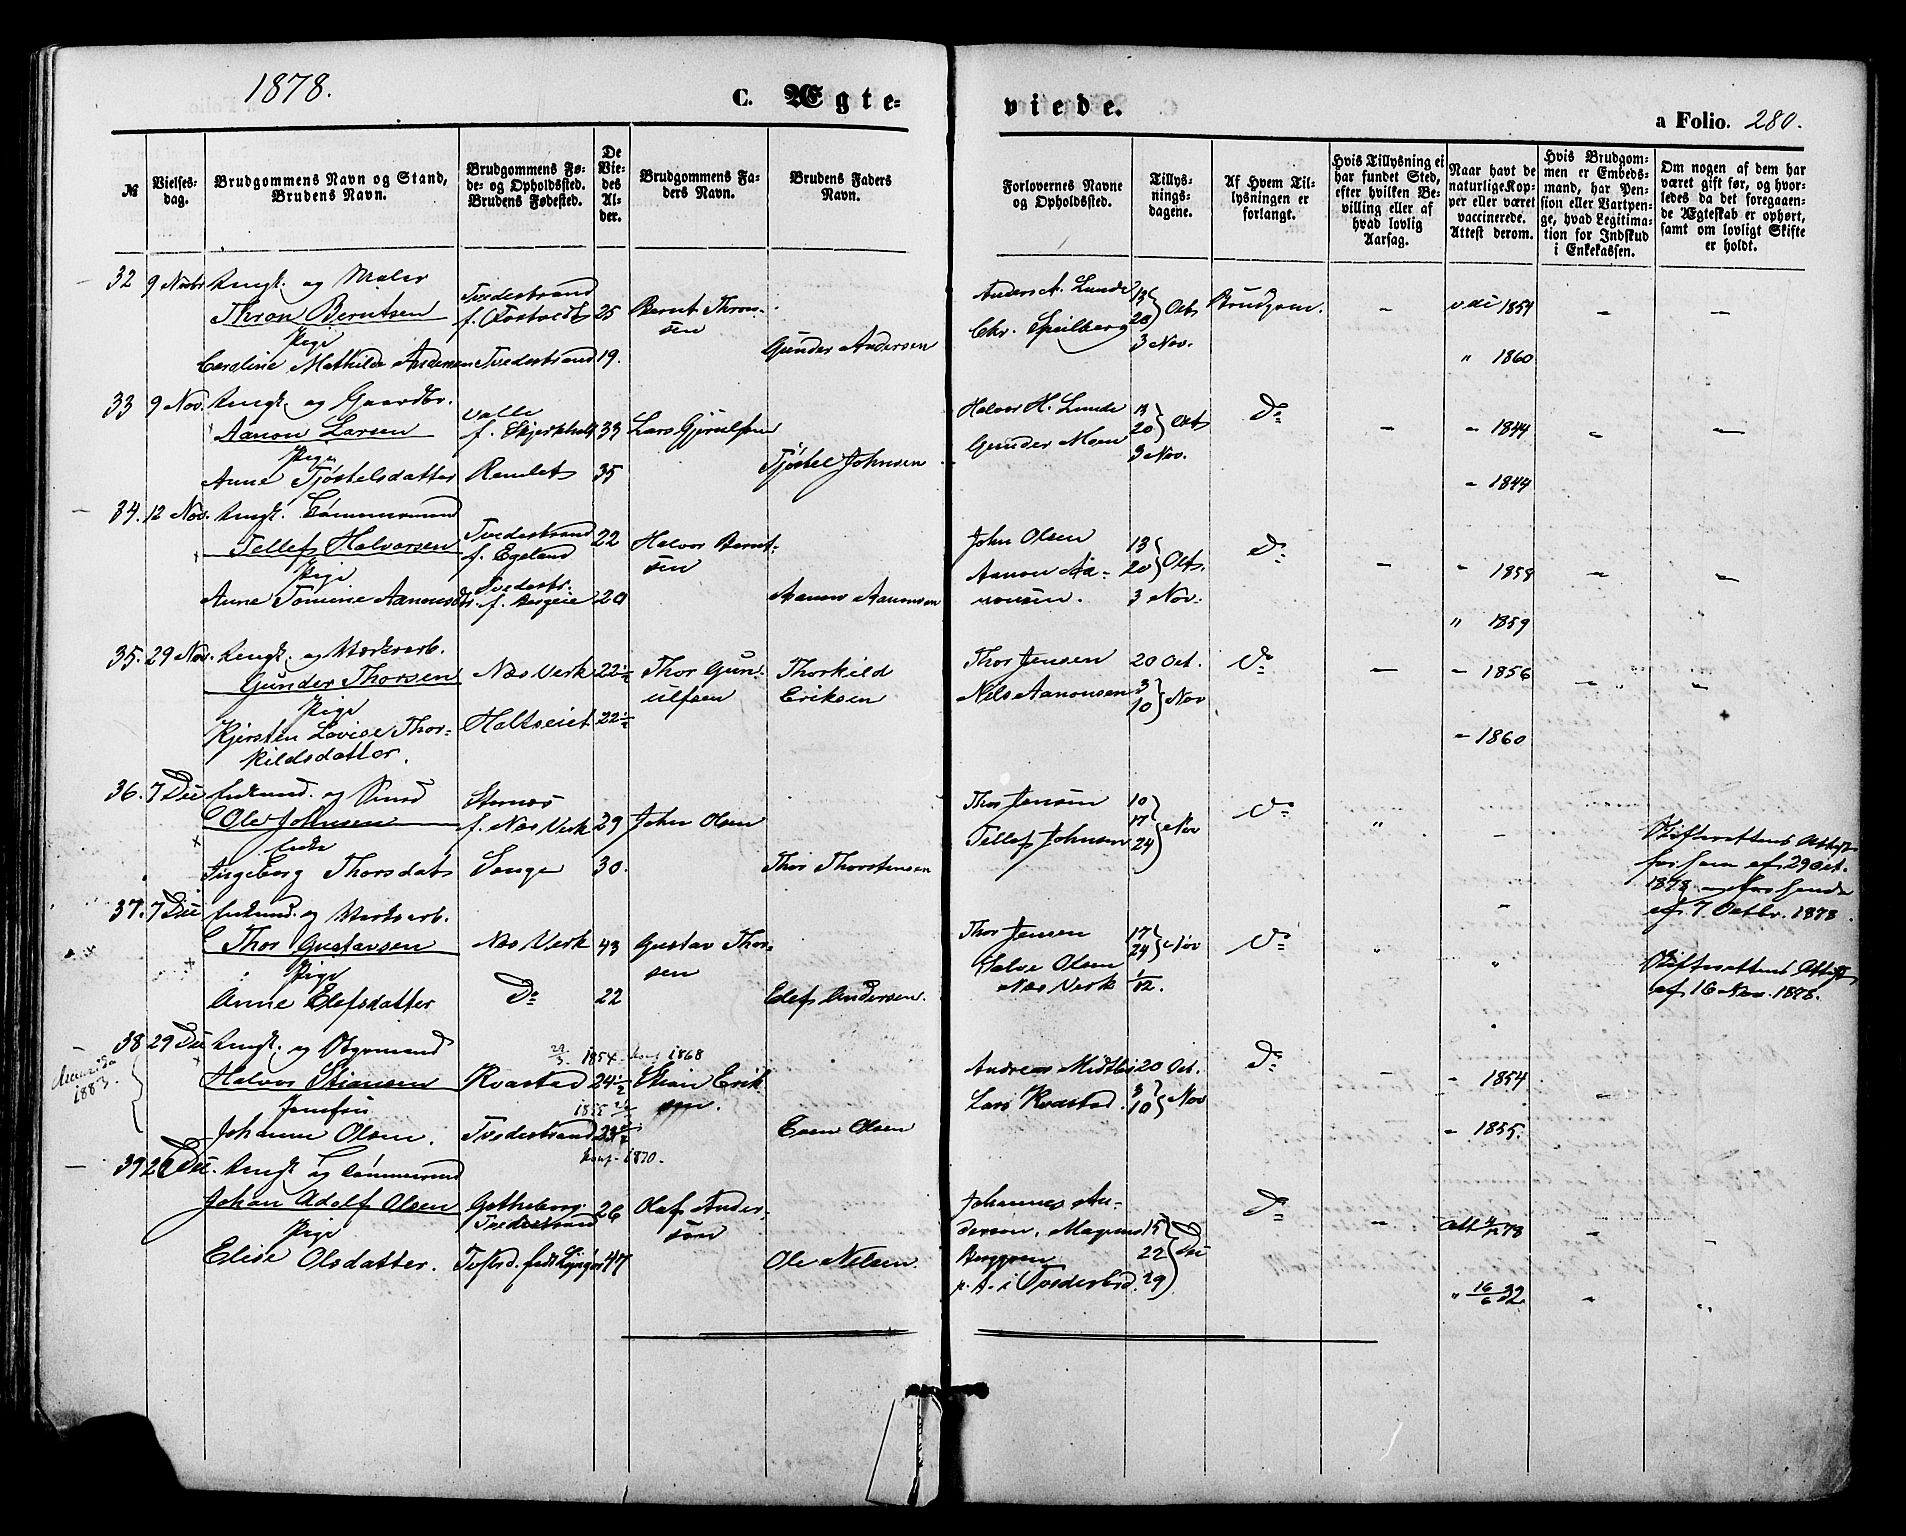 1878.
C. Ægteviede.
a Folio. 280.
№
Vielsesdag.
Brudgommens Navn og Stand, Brudens Navn.
Brudgommens Føde- og Opholdssted. Brudens Fødested.
De Viedes Alder.
Brudgommens Faders Navn.
Brudens Faders Navn.
Forlovernes Navne og Opholdssted.
Tillysningsdagene.
Af Hvem Tillysningen er forlangt.
Hvis Tillysning ei har fundet Sted, efter hvilken Bevilling eller af hvad lovlig Aarsag.
Naar havt de naturlige Kopper eller været vaccinerede. Attest derom.
Hvis Brudgommen er Embedsmand, har Pension eller Vartpenge, hvad Legitimation for Indskud i Enkekassen.
Om nogen af dem har været gift før, og hvorledes da det foregaaende Ægteskab er ophørt, samt om lovligt Skifte er holdt.
32 9 Novbr Ungk. og Maler
Thron Berntsen Tvedestrand f. 25 Bernt Thronsen
Pige
Caroline Mathilde Andersen Tvedestrand 19. Gunder Andersen
Anders A. Lunde
Chr. Spilberg
13 20 Oct
3 Nov.
Brudgom. - 1854 - -
" 1860
33 9 Nov. Ungk. og Gaardbr.
Aanon Larsen Valle f. 33 Lars Gjerulfsen
Pige
Anne Tjøstelsdatter Ramlet 35 Tjøstel Johnsen
Halvor H. Lunde
Gunder Moen
13 20 Oct
3 Nov.
Do - - 1844 - -
- 1844
34. 12 Nov. Ungk. Tømmermand
Tellef Halvorsen Tvedestrand f. Egeland 22 Halvor Berntsen
Pige
Anne Tomine Aanonsdtr. Tvedestr. f. Bergeie 20 Aanon Aanonsen
John Olsen
Aanon Aanonsen.
13 20 Oct.
3 Nov.
Do - - 1858 - -
" 1859
35. 29 Nov. Ungk. og Værksarb.
Gunder Thorsen Næs Verk 22½ Thor Gunulfsen Thorkild Eriksen
Pige
Kjersten Lovise Thorkildsdatter. Holtseiet 22½
Thor Jensen
Nils Aanonsen
20 Oct.
3 10 Nov
Do - - 1856 - -
- 1860
36. 7 Dec Enkemd. og Smed
Ole Johnsen f. Næs Verk 29 John Olsen
Enke
Ingeborg Thorsdatr Songe 30. Thor Thorstensen
Thor Jensen
Tellef Johnsen
10 17 24 Nov
Do " -
Skifterettens Attest for ham af 29 Oct. 1878 og for hende af 7 Octbr. 1878.
37. 7 Dec Enkemd. og Verksarb.
Thor Gustavsen Næs Verk 43 Gustav Thorsen
Pige
Anne Elefsdatter Do 22 Elef Andersen.
Thor Jensen
Salve Olsen
Næs Verk
17 24 Nov
1/12.
Do " "
Skifterettens Attest af 16 Nov. 1878.
38 29 Dec Ungk. og
1883.
Halvor Stiansen Kvastad 24½ Stian Eriksen.
29/3 1854. konf 1868
Jomfru
Johanne Olsen. Tvedestrand 23 Even Olsen
1855
konf. 1870.
Andreas Midtbø 20 Oct.
Lars Kvastad. 3 10 Nov
Do - - 1854 -
- 1855.
39 Dec. Ungk og Tømmermd
Johan Adolf Olsen Gøtheborg. Tvedestrand 26 Olaf Andersson
Pige
Elise Olsdatter. 47 Ole Nelsen.
Johannes Anderson, Magnus Berggren
p. A. i Tvedestrd.
15 22 29 Dec
Do - att 78 -
" 16/6 32 - "